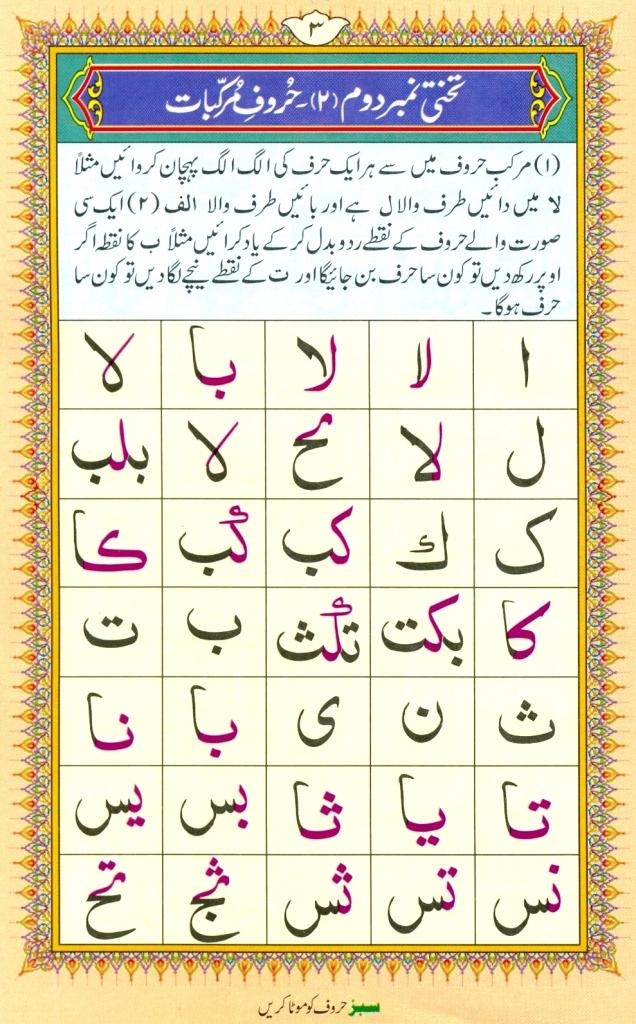 ٣
تختی نمبر دوم (٢)۔ حُروفِ مُرکّبات
(١) مرکب حروف میں سے ہر ایک حرف کی الگ الگ پہچان کروائیں مثلاً
لا میں دائیں طرف والا ل ہے اور بائیں طرف والا الف (٢) ایک سی
صورت والے حروف کے نقطے ردو بدل کر کے یاد کرائیں مثلاً ب کا نقطہ اگر
اوپر رکھ دیں تو کون سا حرف بن جائیگا اور ت کے نقطے نیچے لگا دیں تو کون سا
حرف ہوگا۔
ا لا لا با لا
ل لا لا بلب
ک ك کب کب کا
کا بکت تکث ب ت
ث ن ی با نا
تا یا ثا بس یس
نس تس ثس ثج تح
سبز حروف کو موٹا کریں